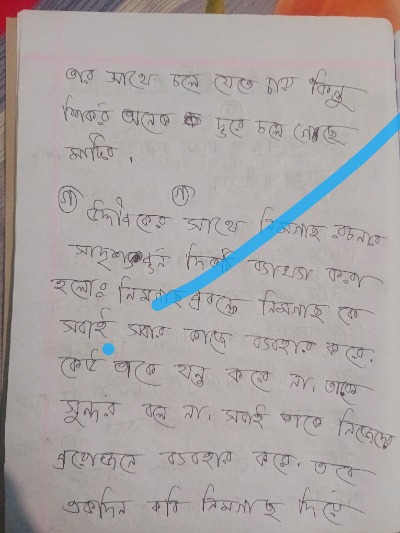 তার সাথে চলে যেতে চায় কিন্তু
শিকড় অনেক দূরে চলে গেছে
মাটির।
গ গ
উদ্দীপকের সাথে নিমগাছ রচনার
সাদৃশ্যপূর্ন দিকটি ব্যাখ্যা করা
হলোঃ নিমগাছ প্রবন্ধে নিমগাছ কে
সবাই সবার কাজে ব্যবহার করে।
কেউ তাকে যত্ন করে না, তাকে
সুন্দর বলে না। সবাই তাকে নিজেদের
প্রয়োজনে ব্যবহার করে। তবে
একদিন কবি নিমগাছ দিয়ে